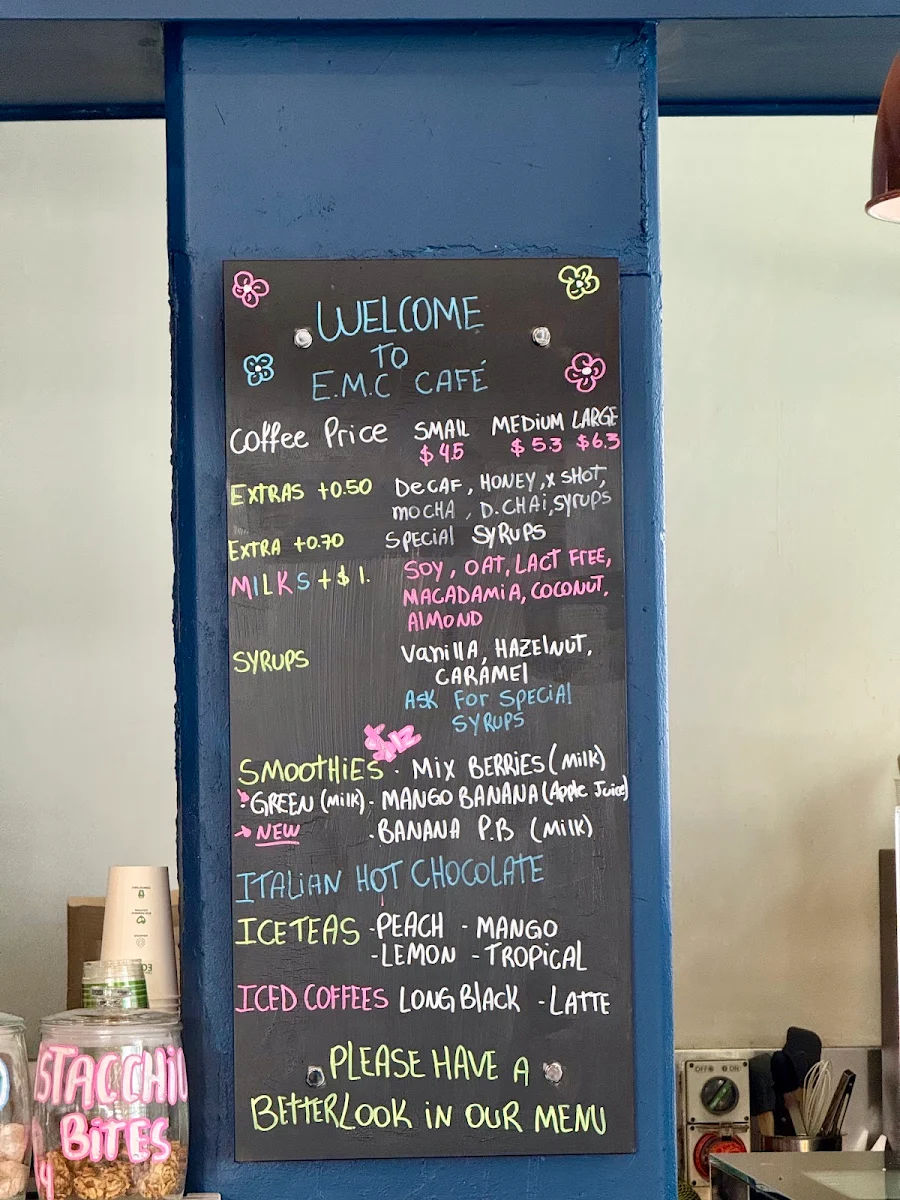 WELCOME
TO
E.M.C CAFÉ
Coffee Price SMALL MEDIUM LARGE
$4.5 $5.3 $6.3
EXTRAS +0.50 DECAF, HONEY, X SHOT,
MOCHA, D.CHAI, SYRUPS
EXTRA +0.70 SPECIAL SYRUPS
MILKS +$1. SOY, OAT, LACT FREE,
MACADAMIA, COCONUT,
ALMOND
SYRUPS VANILLA, HAZELNUT,
CARAMEL
ASK FOR SPECIAL
SYRUPS
$12
SMOOTHIES · MIX BERRIES (milk)
· GREEN (milk) · MANGO BANANA (Apple Juice)
→ NEW · BANANA P.B (milk)
ITALIAN HOT CHOCOLATE
ICETEAS - PEACH - MANGO
- LEMON - TROPICAL
ICED COFFEES LONG BLACK - LATTE
PLEASE HAVE A
BETTER LOOK IN OUR MENU
STACCHI
BITES
4
OFF ON